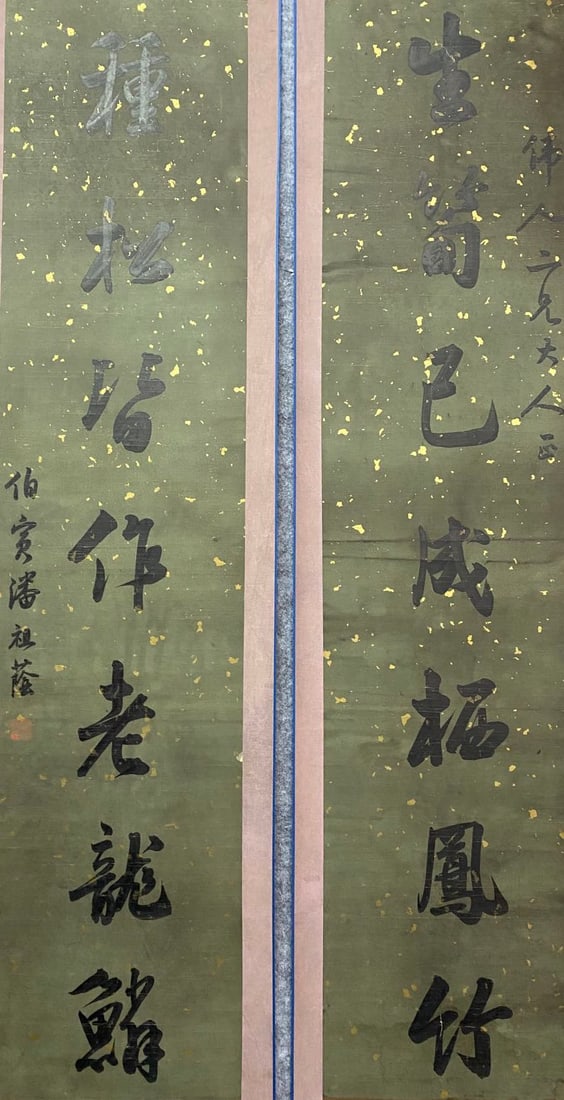 偉人二兄大人正
生筍已成栖鳳竹
種松皆作老龍鱗
伯寅潘祖蔭